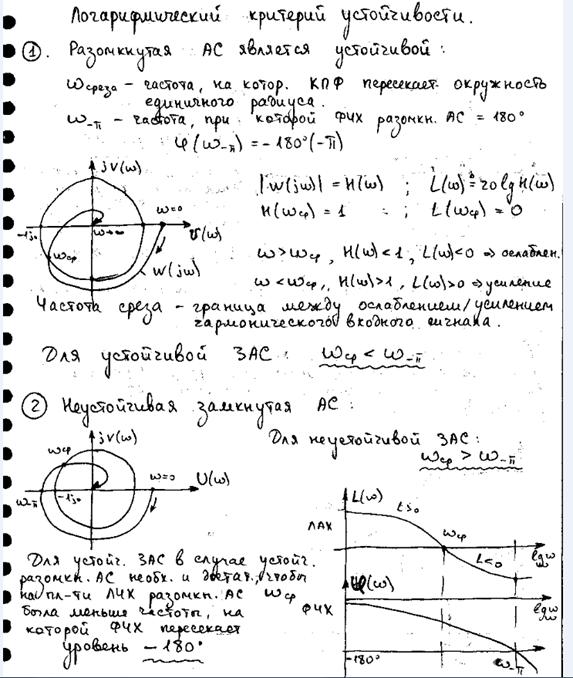 Логарифмический критерий устойчивости.
① Разомкнутая АС является устойчивой:
ωсреза – частота, на котор. КПФ пересекает окружность
единичного радиуса.
ω-π – частота, при которой ФЧХ разомкн. АС = 180°
φ(ω-π) = -180°(-π)
jV(ω)
ω=0
-1j0
ω→∞
U(ω)
ωср
W(jω)
|W(jω)| = H(ω) ; L(ω) = 20 lg H(ω)
H(ωср) = 1 ; L(ωср) = 0
ω>ωср, H(ω)<1, L(ω)<0 ⇒ ослаблен.
ω<ωср, H(ω)>1, L(ω)>0 ⇒ усиление
Частота среза – граница между ослаблением/усилением
гармонического входного сигнала.
Для устойчивой ЗАС: ωср < ω-π
② Неустойчивая замкнутая АС:
jV(ω)
ωср
ω=0
U(ω)
ω-π
-1j0
Для неустойчивой ЗАС:
ωср > ω-π
Для устойч. ЗАС в случае устойч.
разомкн. АС необх. и достат., чтобы
на пл-ти ЛЧХ разомкн. АС ωср
была меньше частоты, на
которой ФЧХ пересекает
уровень -180°
L(ω)
L>0
ЛАХ
ωср
L<0
lg ω
φ(ω)
ФЧХ
lg ω
-180°
ω-π